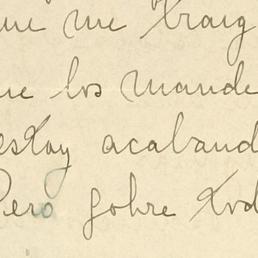 me traig
los mande
estoy acaband
Pero sobre tod